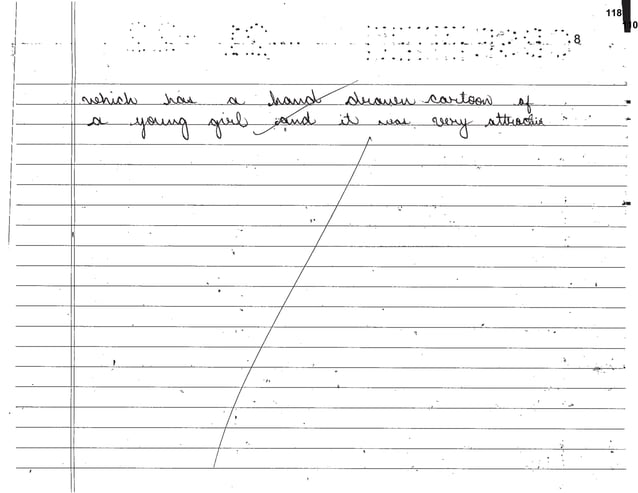 118
8
which has a hand drawen cartoon of
a young girl and it was very attractive